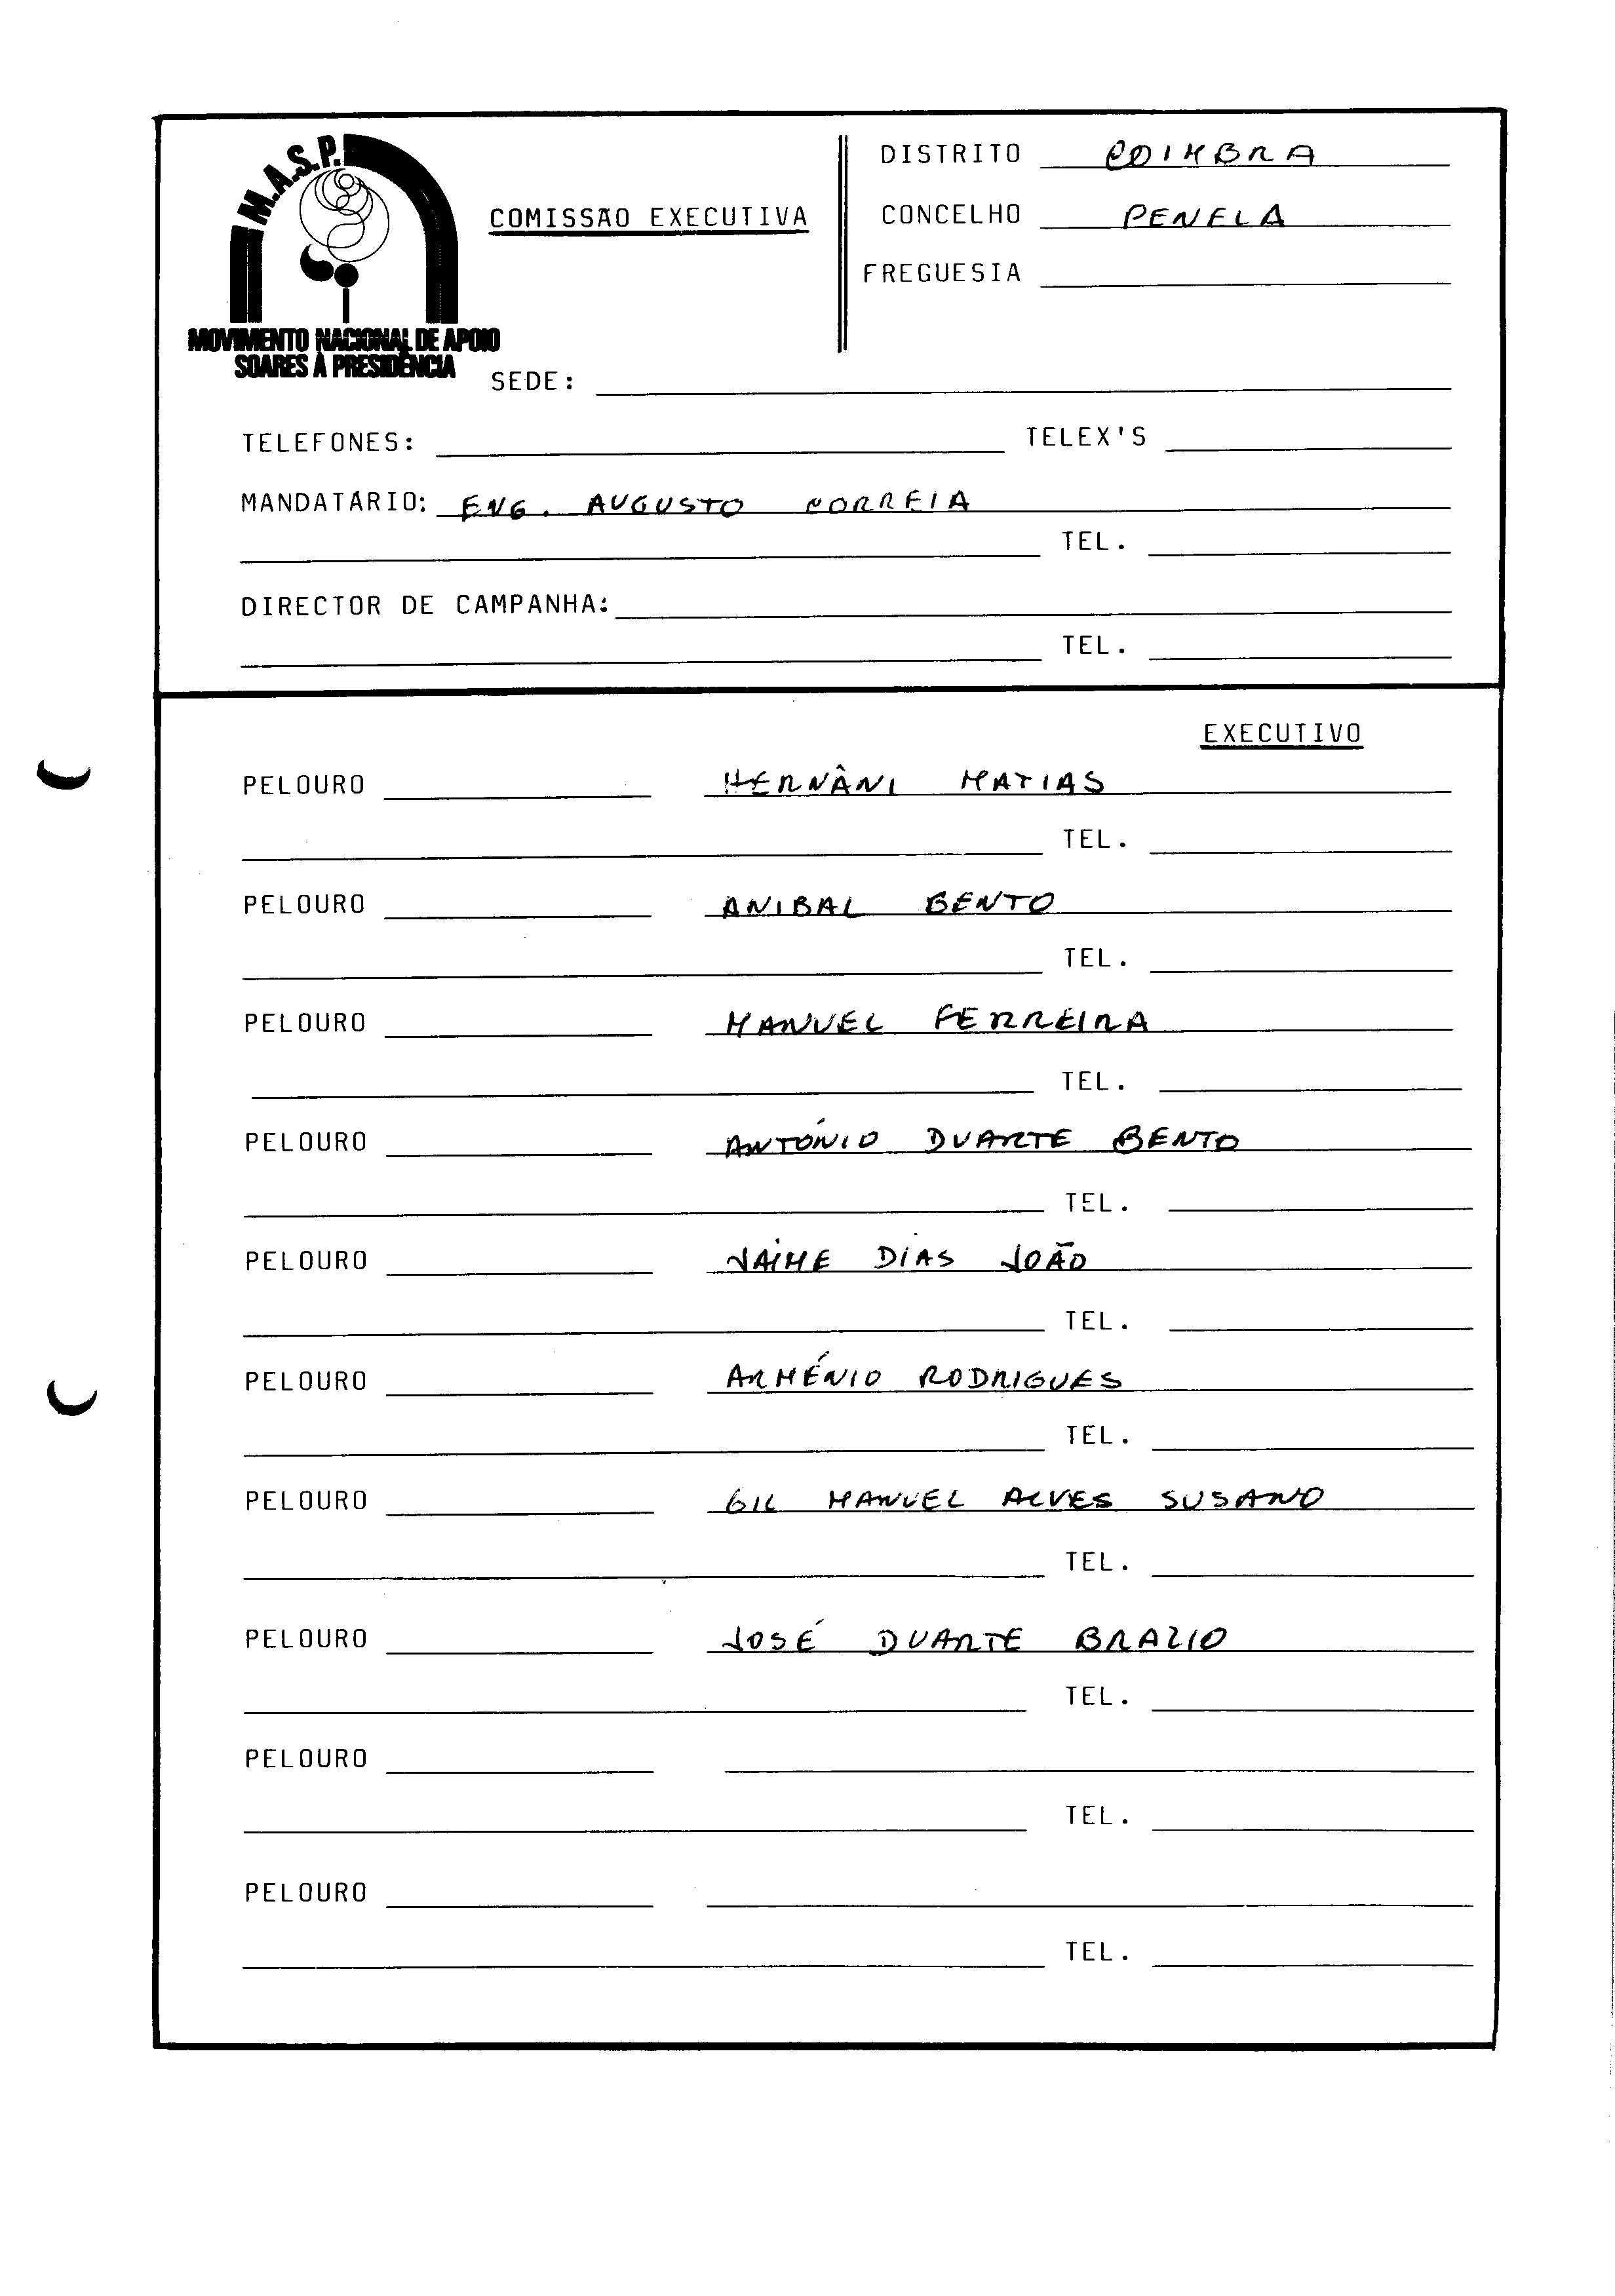 M.A.S.P.
MOVIMENTO NACIONAL DE APOIO
SOARES À PRESIDÊNCIA
COMISSÃO EXECUTIVA
DISTRITO COIMBRA
CONCELHO PENELA
FREGUESIA
SEDE:
TELEFONES: TELEX'S
MANDATÁRIO: ENG. AUGUSTO CORREIA
TEL.
DIRECTOR DE CAMPANHA:
TEL.
EXECUTIVO
PELOURO HERNÂNI MATIAS
TEL.
PELOURO ANIBAL BENTO
TEL.
PELOURO MANUEL FERREIRA
TEL.
PELOURO ANTÓNIO DUARTE BENTO
TEL.
PELOURO JAIME DIAS JOÃO
TEL.
PELOURO ARMÉNIO RODRIGUES
TEL.
PELOURO GIL MANUEL ALVES SUSANO
TEL.
PELOURO JOSÉ DUARTE BRAZIO
TEL.
PELOURO
TEL.
PELOURO
TEL.